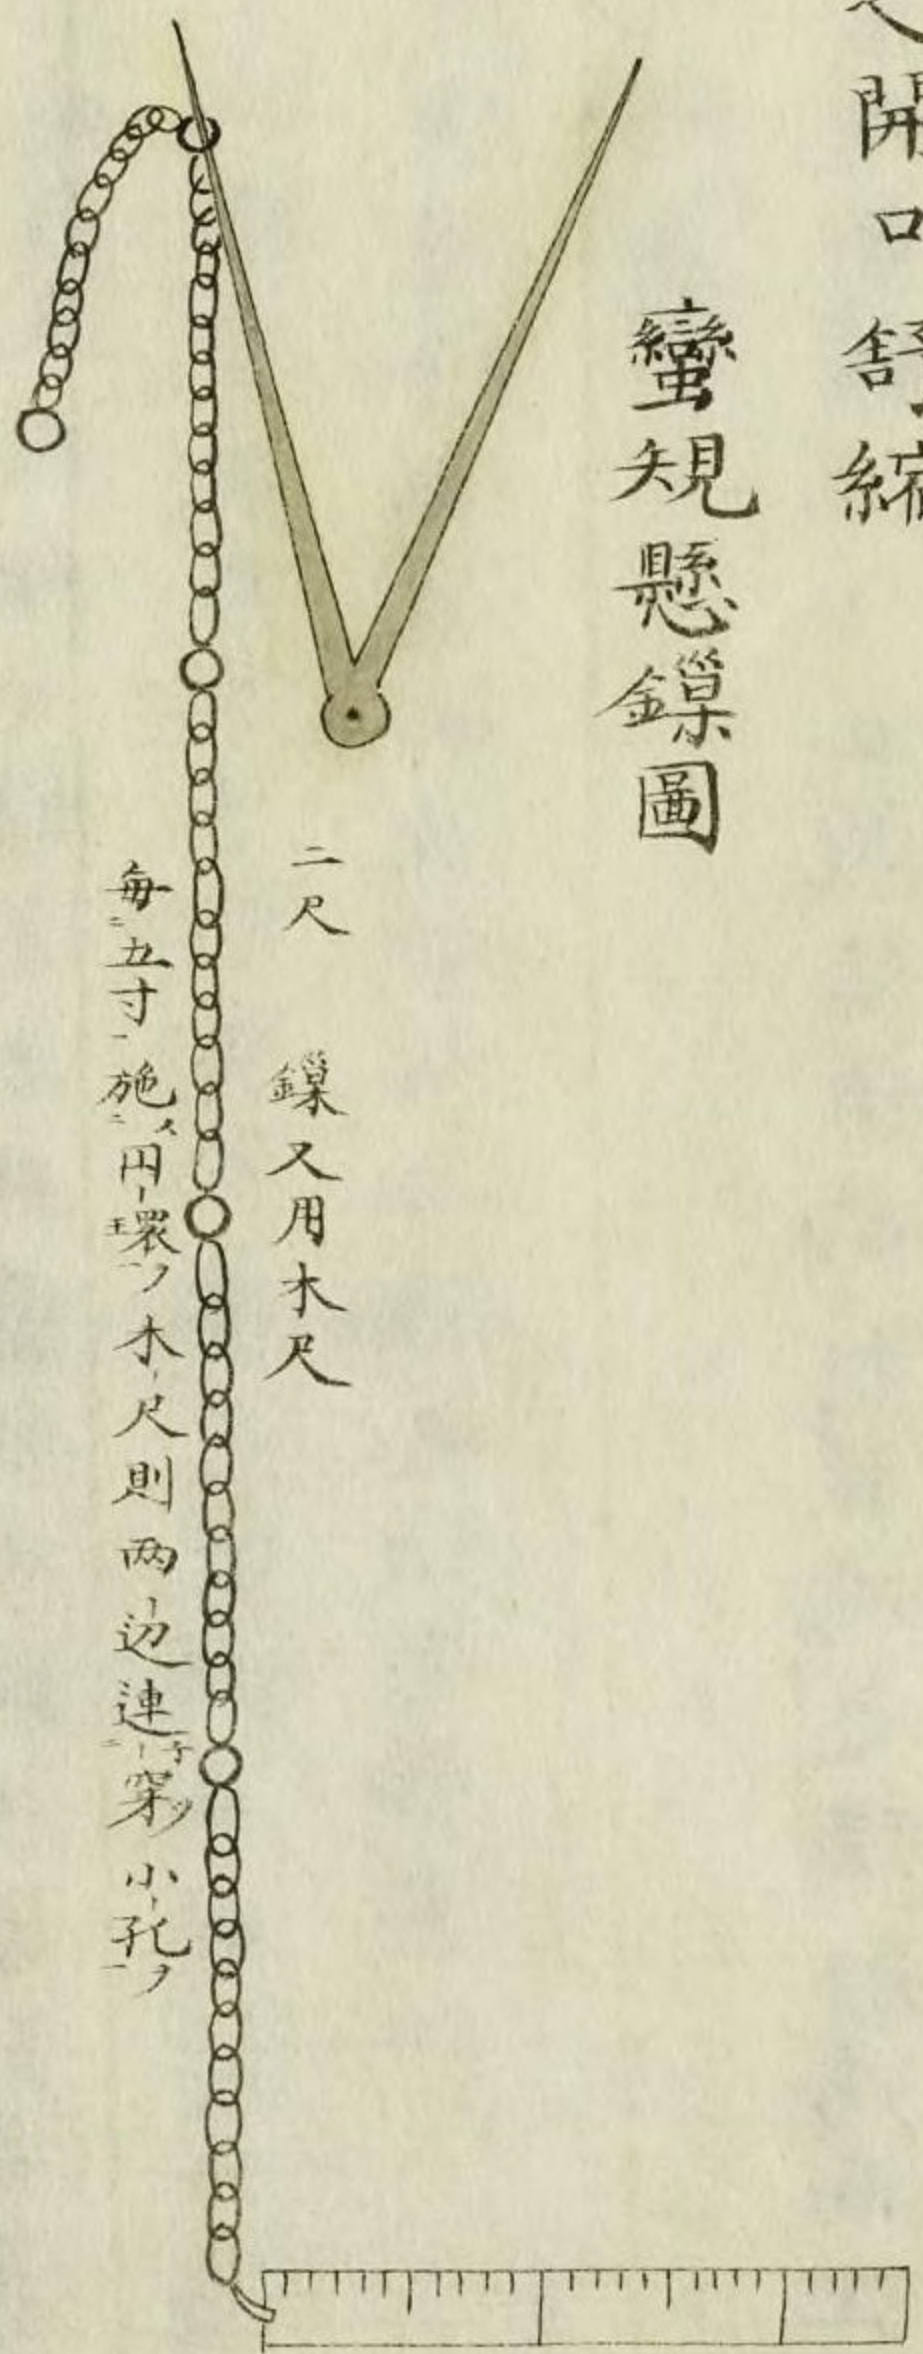 開口舒縮
蠻規懸鏁圖
二尺　鏁又用木尺
每五寸施円環木尺則两辺連穿小孔